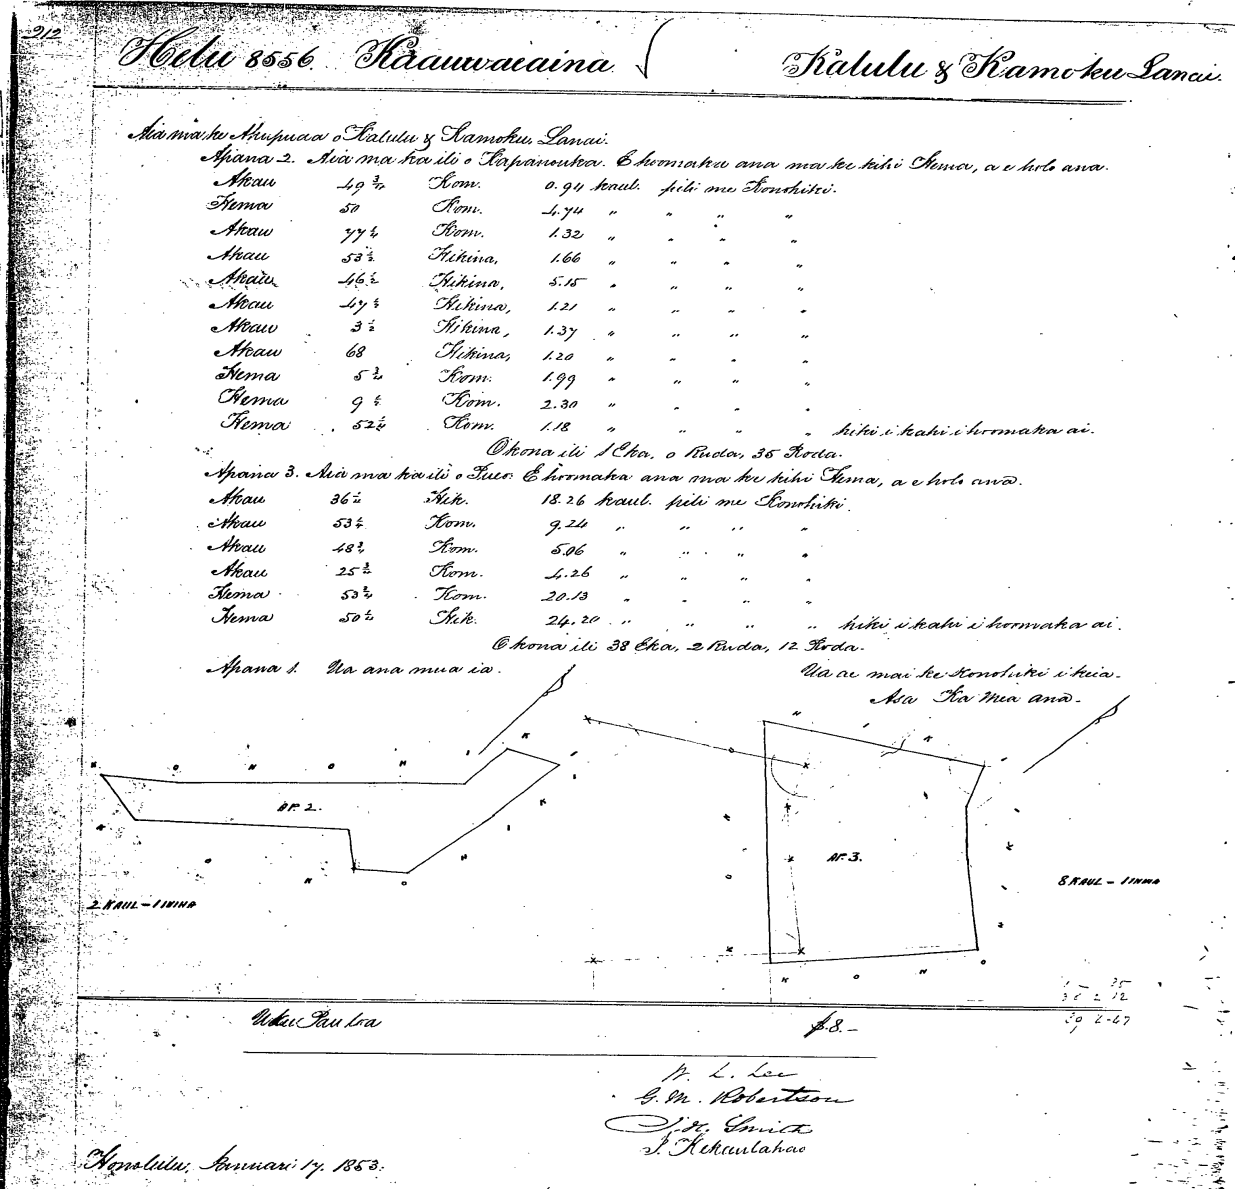 212
Helu 8556. Kaauwaeaina Kalulu & Kamoku Lanai.
Aia ma ke Ahupuaa o Kalulu & Kamoku, Lanai.
Apana 2. Aia ma ka ili o Kapanouka. E hoomaka ana ma ke kihi Hema, a e holo ana.
Akau 49 3/4 Kom. 0.94 kaul. pili me Konohiki.
Hema 50 Kom. 4.74 " " " "
Akau 77 1/4 Kom. 1.32 " " " "
Akau 53 1/2 Hikina, 1.66 " " " "
Akau 46 1/2 Hikina, 5.15 " " " "
Akau 47 1/2 Hikina, 1.21 " " " "
Akau 3 1/2 Hikina, 1.37 " " " "
Akau 68 Hikina, 1.20 " " " "
Hema 5 3/4 Kom. 1.99 " " " "
Hema 9 Kom. 2.30 " " " "
Hema 52 Kom. 1.18 " " " " hiki i kahi i hoomaka ai.
Okona ili 1 Eka, 0 Ruda, 35 Roda.
Apana 3. Aia ma ka ili o Pueo. E hoomaka ana ma ke kihi Hema, a e holo ana.
Akau 36 Hik. 18.26 kaul. pili me Konohiki
Akau 53 Kom. 9.24 " " " "
Akau 48 3/4 Kom. 5.06 " " " "
Akau 25 3/4 Kom. 4.26 " " " "
Hema 53 3/4 Kom. 20.13 " " " "
Hema 50 1/2 Hik. 24.20 " " " " hiki i kahi i hoomaka ai.
Okona ili 38 Eka, 2 Ruda, 12 Roda.
Apana 1. Ua ana mua ia. Ua ae mai ke Konohiki i keia.
Asa Ka Mea ana.
K O N O H I K I
AP. 2.
K O N H I K I
2 KAUL – 1 INIHA
K O N O H I K I
AP. 3.
K O N O H I K I
8 KAUL – 1 INIHA
Uku Pau loa $8.–
W. L. Lee
G. M. Robertson
J. H. Smith
S. Kekaulahao
Honolulu, Ianuari 17. 1853.